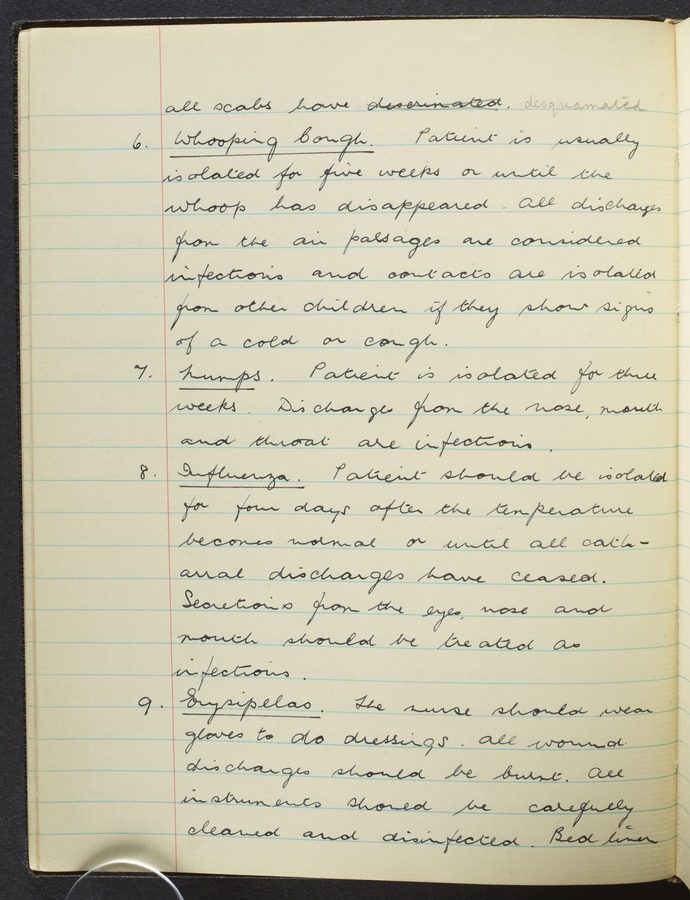 all scabs have descrinated. desquamated
6. Whooping Cough. Patient is usually
isolated for five weeks or until the
whoop has disappeared. All discharges
from the air passages are considered
infectious and contacts are isolated
from other children if they show signs
of a cold or cough.
7. Mumps. Patient is isolated for three
weeks. Discharge from the nose, mouth
and throat are infectious.
8. Influenza. Patient should be isolated
for four days after the temperature
becomes normal or until all cath-
arral discharges have ceased.
Secretions from the eyes, nose and
mouth should be treated as
infectious.
9. Erysipelas. The nurse should wear
gloves to do dressings. All wound
discharges should be burnt. All
instruments should be carefully
cleaned and disinfected. Bed linen